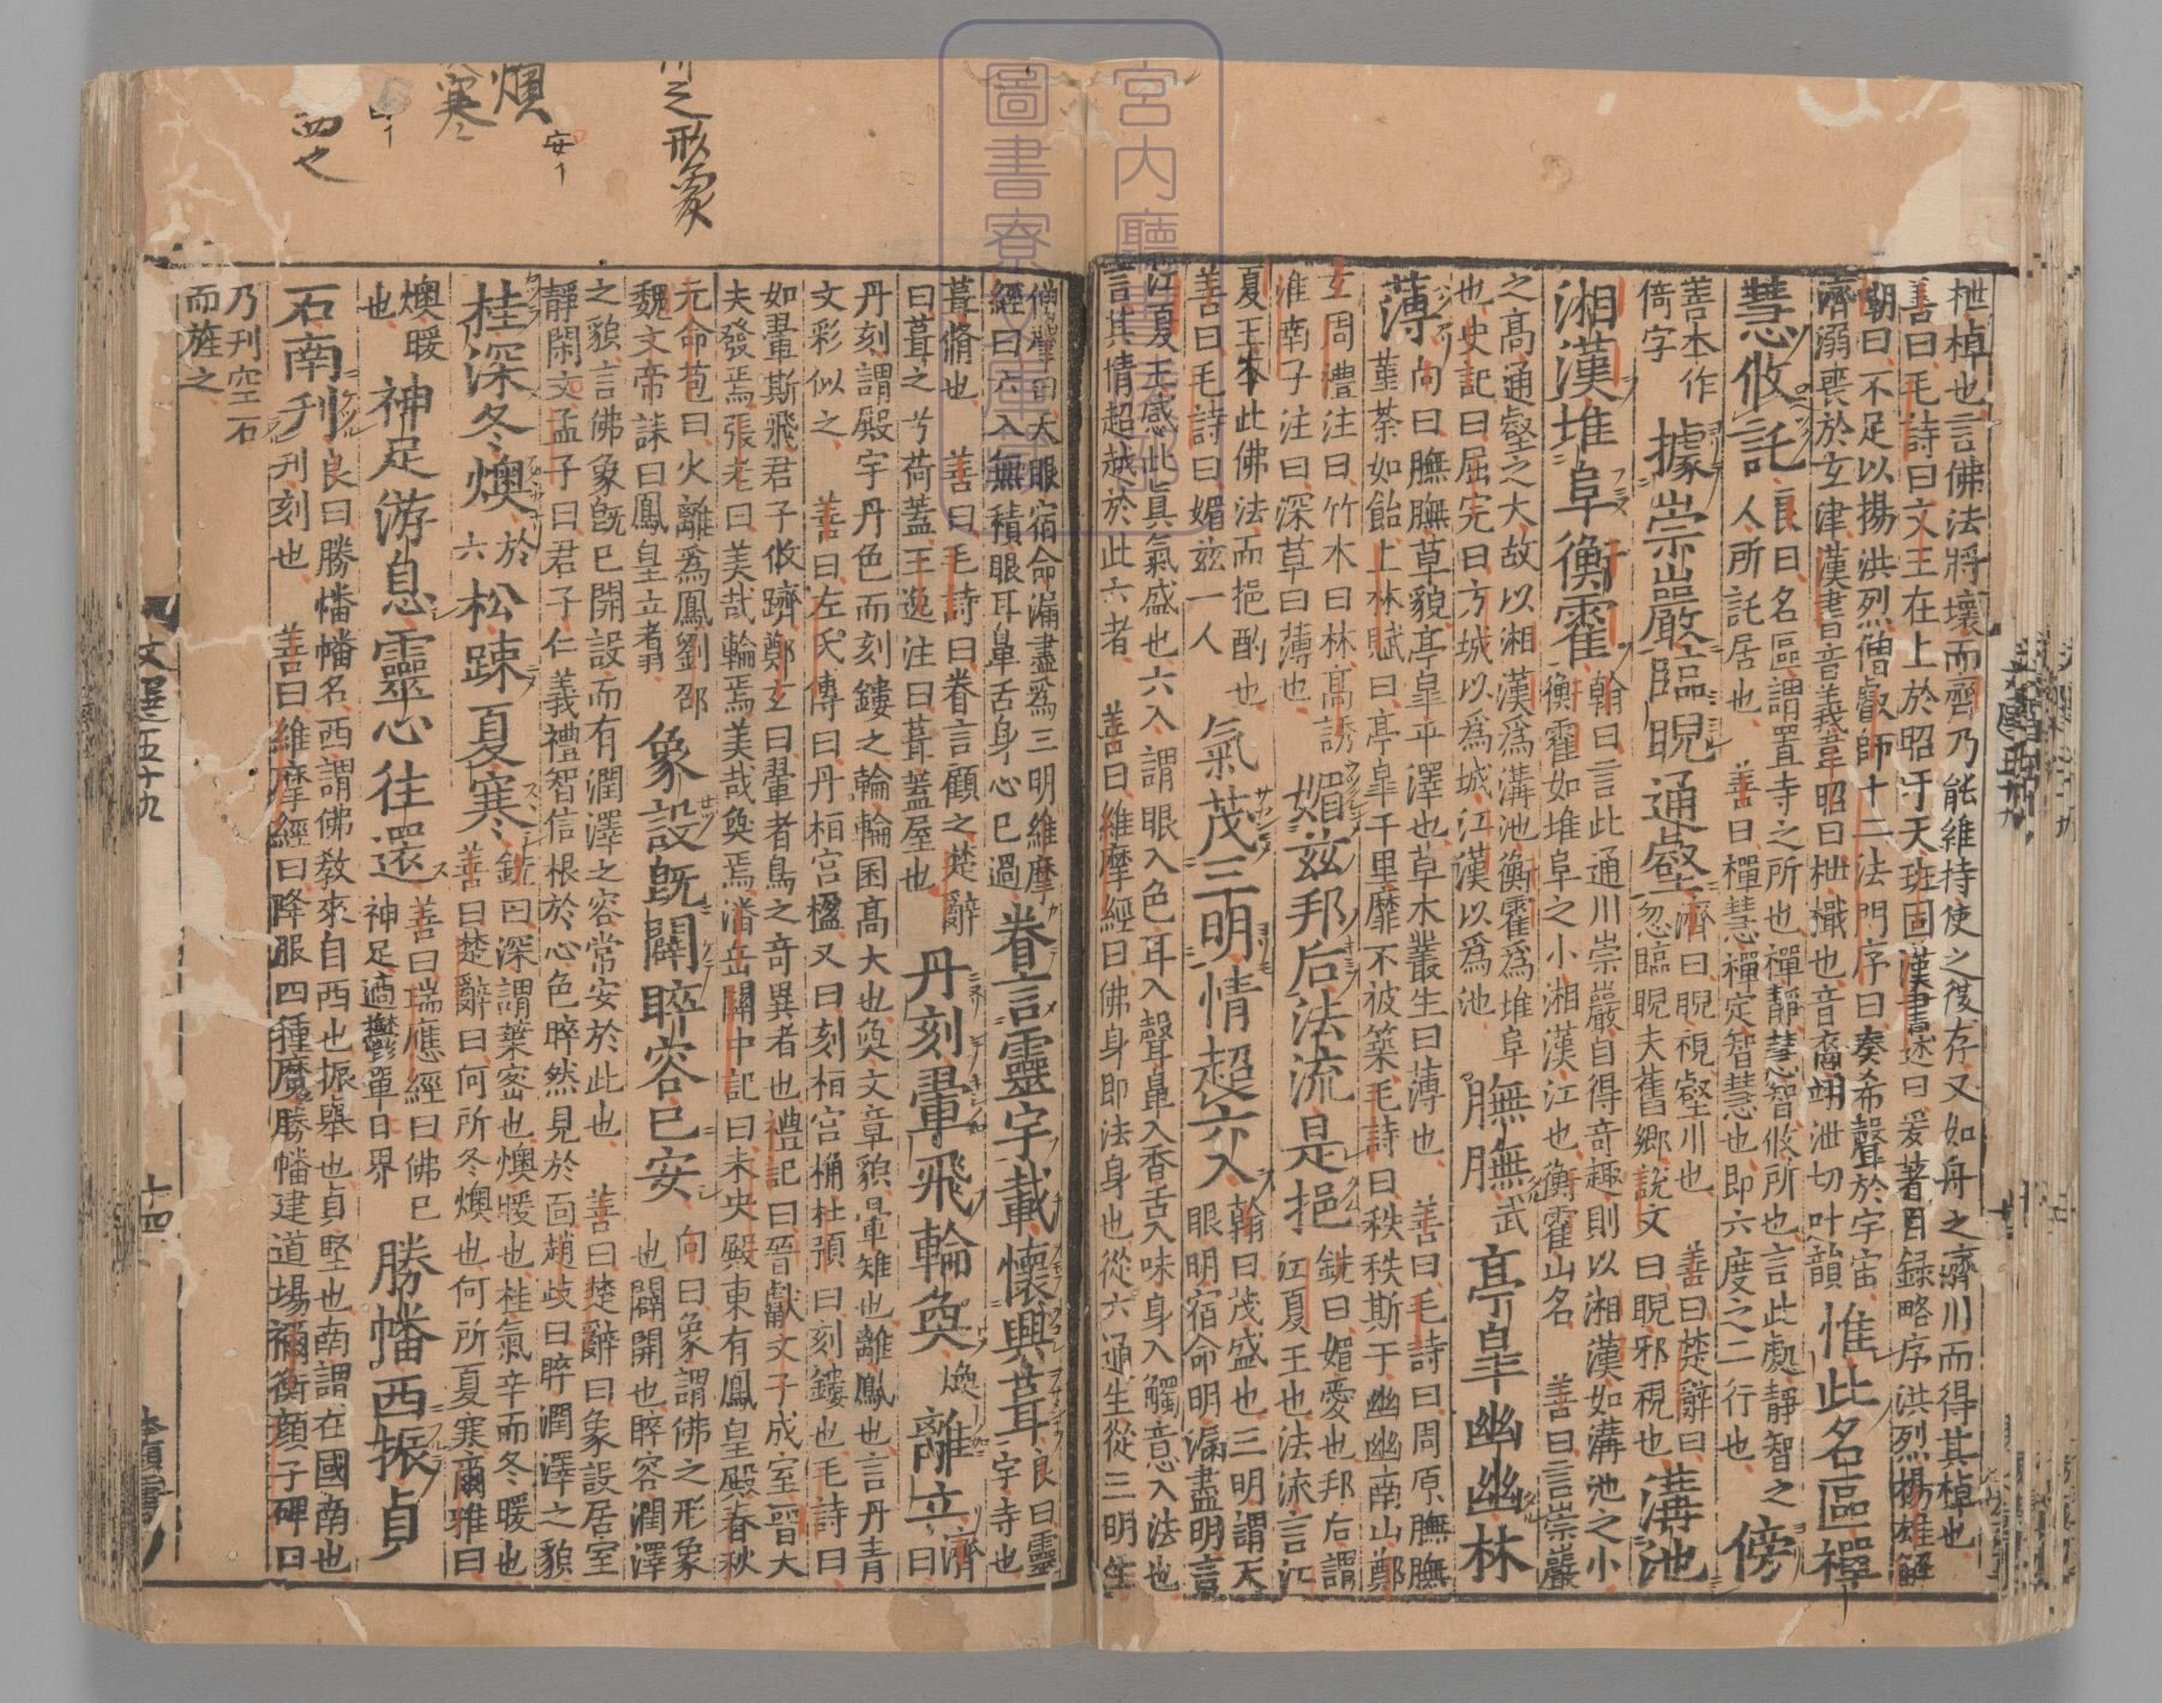 枻棹也言佛法將壞而齊乃能維持使之復存又如舟之濟川而得其棹也
善曰毛詩曰文王在上於昭于天班固漢書述曰爰著目録略序洪烈揚雄解
嘲曰不足以揚洪烈僧叡師十二法門序曰奏希聲於宇宙
濟溺喪於玄津漢書音義韋昭曰枻檝也音裔翊泄切叶韻
惟此名區禪
慧攸託
良曰名區謂置寺之所也禪靜慧智攸所也言此處靜智之
人所託居也 善曰禪慧禪定智慧也即六度之二行也
傍
善本作
倚字
據崇巖臨睨通壑
濟曰睨視壑川也 善曰楚辭曰
忽臨睨夫舊鄉說文曰睨邪視也
溝池
湘漢堆阜衡霍
翰曰言此通川崇巖自得奇趣則以湘漢如溝池之小
衡霍如堆阜之小湘漢江也衡霍山名 善曰言崇巖
之高通壑之大故以湘漢爲溝池衡霍爲堆阜
也史記曰屈完曰方城以爲城江漢以爲池
膴膴武亭臯幽幽林
薄
向曰膴膴草貌亭臯平澤也草木叢生曰薄也 善曰毛詩曰周原膴膴
菫荼如飴上林賦曰亭臯千里靡不被築毛詩曰秩秩斯干幽幽南山鄭
玄周禮注曰竹木曰林高誘
淮南子注曰深草曰薄也
媚茲邦后法流是挹
銑曰媚愛也邦后謂
江夏王也法流言江
夏王本此佛法而挹酌也
善曰毛詩曰媚茲一人
氣茂三明情超六入
翰曰茂盛也三明謂天
眼明宿命明漏盡明言
江夏王感此真氣盛也六入謂眼入色耳入聲鼻入香舌入味身入觸意入法也
言其情超越於此六者 善曰維摩經曰佛身即法身也從六通生從三明生
僧肇曰天眼宿命漏盡爲三明維摩
經曰六入無積眼耳鼻舌身心已過
眷言靈宇載懷興葺
良曰靈
宇寺也
葺脩也 善曰毛詩曰眷言顧之楚辭
曰葺之兮荷蓋王逸注曰葺蓋屋也
丹刻翬飛輪奐煥離立
濟
曰
丹刻謂殿宇丹色而刻鏤之輪輪囷高大也奐文章貌翬雉也離鳳也言丹青
文彩似之 善曰左氏傳曰丹桓宮楹又曰刻桓宮桷杜預曰刻鏤也毛詩曰
如翬斯飛君子攸躋鄭玄曰翬者鳥之奇異者也禮記曰晉獻文子成室晉大
夫發焉張老曰美哉輪焉美哉奐焉潘岳關中記曰未央殿東有鳳皇殿春秋
元命苞曰火離爲鳳劉邵
魏文帝誄曰鳳皇立者羽
象設既闢睟容已安
向曰象謂佛之形象
也闢開也睟容潤澤
之貌言佛象既已開設而有潤澤之容常安於此也 善曰楚辭曰象設居室
靜閑安孟子曰君子仁義禮智信根於心色睟然見於面趙歧曰睟潤澤之貌
桂深冬燠於六松踈夏寒
銑曰深謂葉密也燠暖也桂氣辛而冬暖也
善曰楚辭曰何所冬燠也何所夏寒爾雅曰
燠暖
也
神足游息靈心往還
善曰瑞應經曰佛已
神足適鬱單曰界
勝幡西振貞
石南刊
良曰勝幡幡名西謂佛教來自西也振舉也貞堅也南謂在國南也
刊刻也 善曰維摩經曰降服四種魔勝幡建道場禰衡顏子碑曰
乃刊空石
而旌之
文選五十九
十四
之形象
燠
寒
安
宮内廳
圖書寮